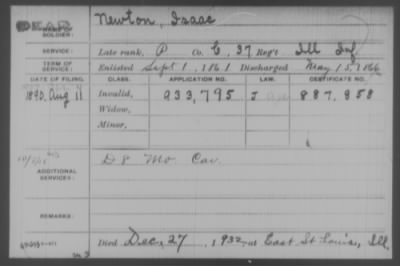 DEAD
NAME OF SOLDIER: Newton, Isaac
SERVICE: Late rank, P Co. C, 37 Reg't Ill Inf
TERM OF SERVICE: Enlisted Sept 1, 1861 Discharged May 15, 1866
DATE OF FILING. CLASS. APPLICATION NO. LAW. CERTIFICATE NO.
1890, Aug 11 Invalid, 933,795 J 887,858
Widow,
Minor,
ADDITIONAL SERVICES: D 8 Mo. Cav.
REMARKS:
Died Dec. 27, 1932, at East St Louis, Ill.